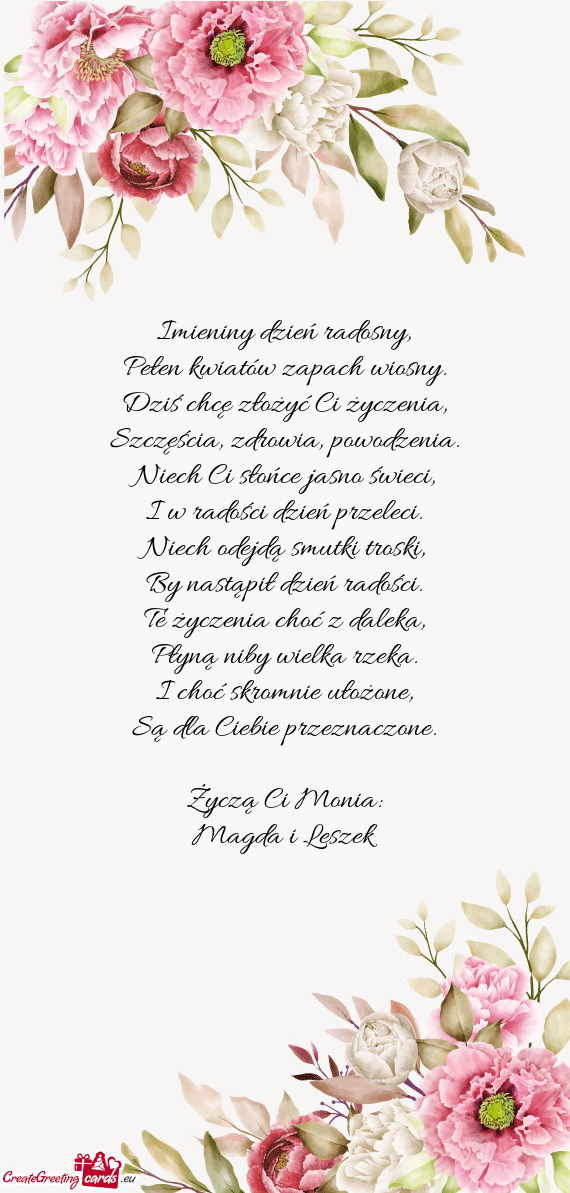 Imieniny dzień radosny,
Pełen kwiatów zapach wiosny.
Dziś chcę złożyć Ci życzenia,
Szczęścia, zdrowia, powodzenia.
Niech Ci słońce jasno świeci,
I w radości dzień przeleci.
Niech odejdą smutki troski,
By nastąpił dzień radości.
Te życzenia choć z daleka,
Płyną niby wielka rzeka.
I choć skromnie ułożone,
Są dla Ciebie przeznaczone.
Życzą Ci Monia:
Magda i Leszek
CreateGreeting cards .eu